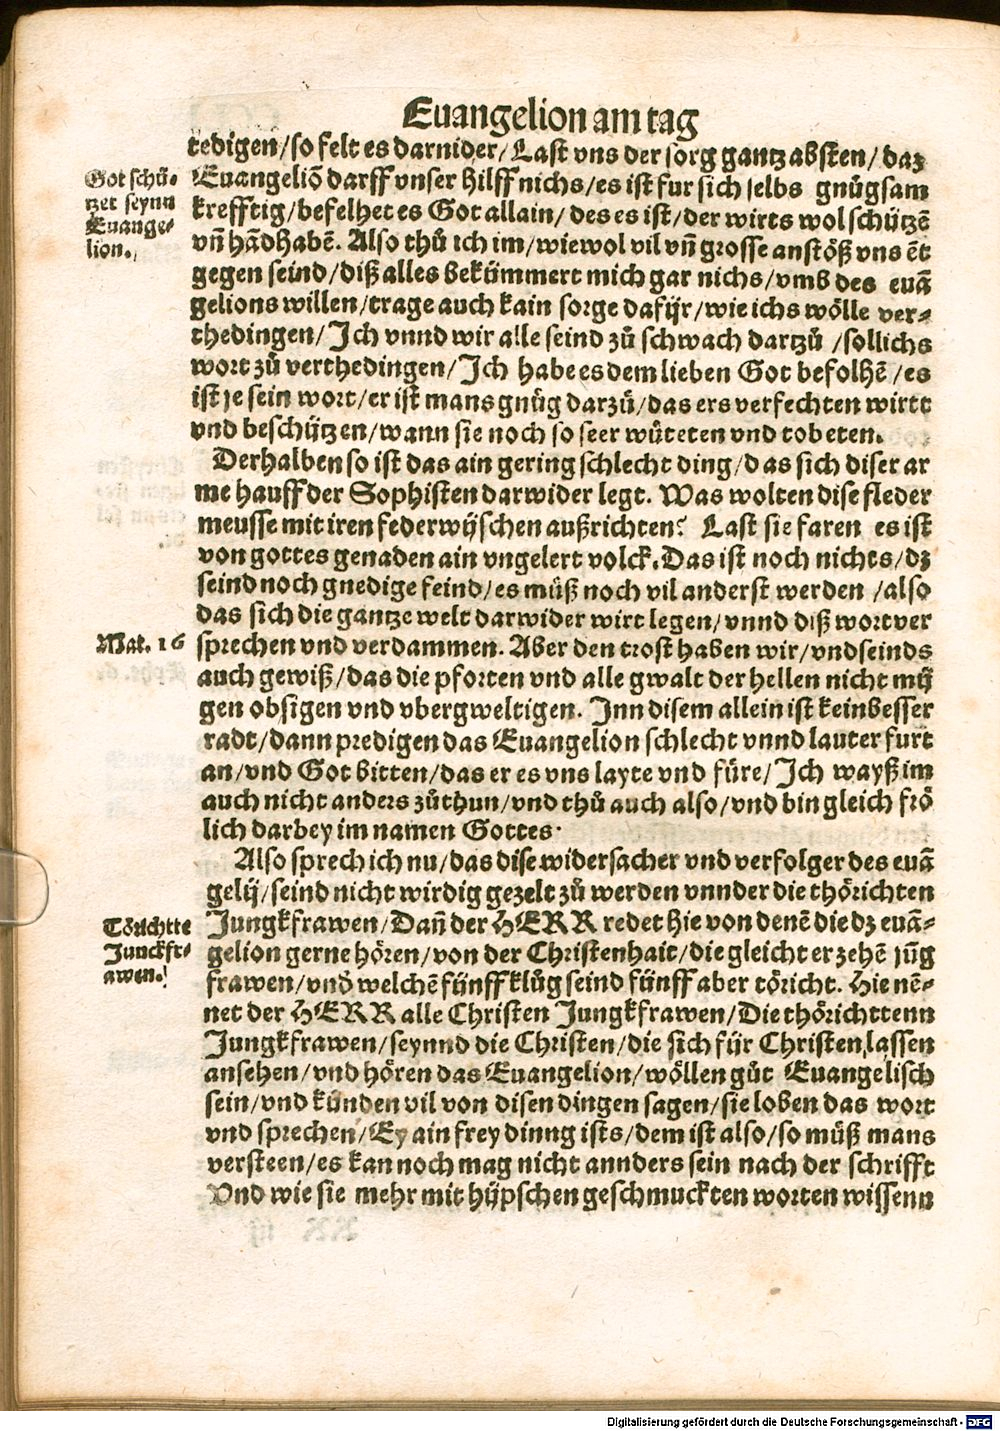 Euangelion am tag
tedigen/so felt es darnider/Last vns der sorg gantz absten/daz
Euangeliõ darff vnser hilff nichs/es ist fur sich selbs gnůgsam
krefftig/befelhet es Got allain/des es ist/der wirts wol schützẽ
vñ hãdhabẽ. Also thů ich im/wiewol vil vñ grosse anstöß vns ẽt
gegen seind/diß alles bekümmert mich gar nichs/vmb des euã
gelions willen/trage auch kain sorge dafür/wie ichs wölle ver⸗
thedingen/Ich vnnd wir alle seind zů schwach dartzů /sollichs
wort zů verthedingen/Ich habe es dem lieben Got befolhẽ/es
ist je sein wort/er ist mans gnůg darzů/das ers verfechten wirtt
vnd beschützen/wann sie noch so seer wüteten vnd tobeten.
Derhalben so ist das ain gering schlecht ding/das sich diser ar
me hauff der Sophisten darwider legt. Was wolten dise fleder
meusse mit iren federwüschen außrichten? Last sie faren es ist
von gottes genaden ain vngelert volck. Das ist noch nichts/dz
seind noch gnedige feind/es můß noch vil anderst werden /also
das sich die gantze welt darwider wirt legen/vnnd diß wort ver
sprechen vnd verdammen. Aber den trost haben wir/vnd seinds
auch gewiß/das die pforten vnd alle gwalt der hellen nicht mü
gen obsigen vnd vbergweltigen. Inn disem allein ist kein besser
radt/dann predigen das Euangelion schlecht vnnd lauter furt
an/vnd Got bitten/das er es vns layte vnd füre/Ich wayß im
auch nicht anders zůthun/vnd thů auch also/vnd bin gleich frö
lich darbey im namen Gottes.
Also sprech ich nu/das dise widersacher vnd verfolger des euã
gelij/seind nicht wirdig gezelt zů werden vnnder die thörichten
Jungkfrawen/Dañ der HERR redet hie von denẽ die dz euã⸗
gelion gerne hören/von der Christenhait/die gleicht er zehẽ jũg
frawen/vnd welchẽ fünff klůg seind fünff aber töricht. Hie nẽ⸗
net der HERR alle Christen Jungkfrawen/Die thörichttenn
Jungkfrawen/seynnd die Christen/die sich für Christen lassen
ansehen/vnd hören das Euangelion/wöllen gůt Euangelisch
sein/vnd künden vil von disen dingen sagen/sie loben das wort
vnd sprechen/Ey ain frey dinng ists/dem ist also/so můß mans
versteen/es kan noch mag nicht annders sein nach der schrifft
Vnd wie sie mehr mit hüpschen geschmuckten worten wissenn
Got schü⸗
tzet seynn
Euange⸗
lion.
Mat. 16
Törichtte
Junckfr⸗
awen.
Digitalisierung gefördert durch die Deutsche Forschungsgemeinschaft - DFG